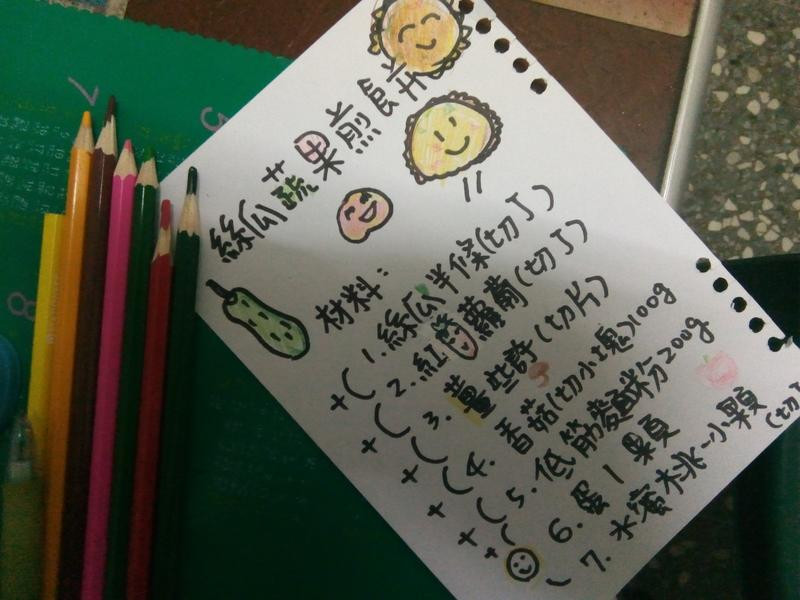 絲瓜蔬果煎食餅
材料:
1. 絲瓜半條(切丁)
2. 紅蘿蔔(切丁)
3. 薑些許(切片)
4. 香菇(切小塊)100g
5. 低筋麵粉200g
6. 蛋1顆
7. 水蜜桃一小顆(切丁